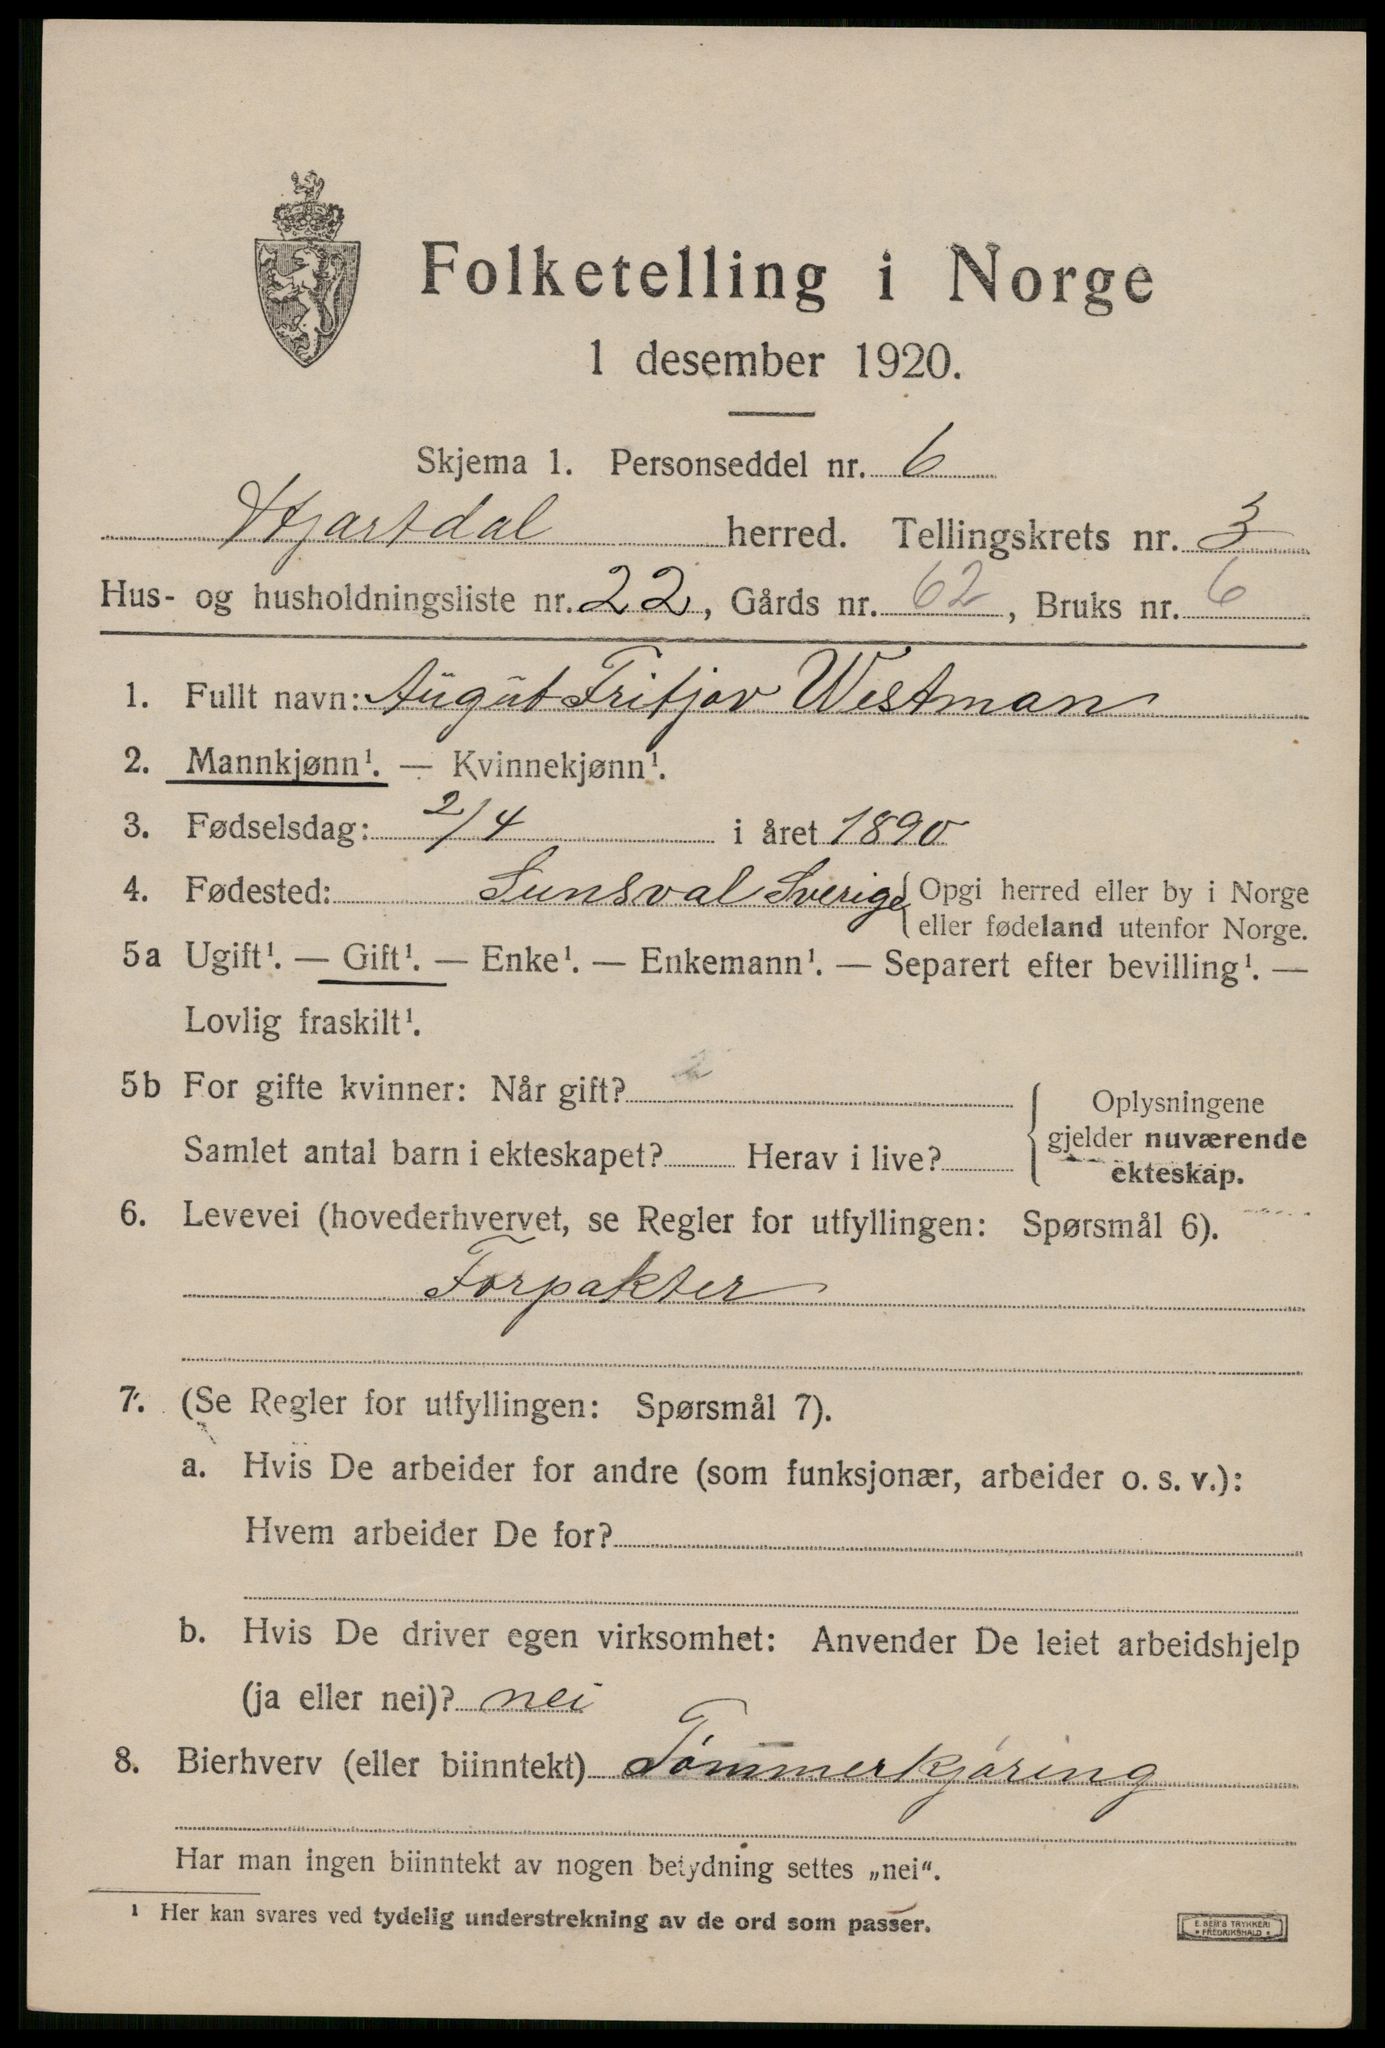 Folketelling i Norge
1 desember 1920.
Skjema 1. Personseddel nr. 6
Hjartdal herred. Tellingskrets nr. 3
Hus- og husholdningsliste nr. 22, Gårds nr. 62, Bruks nr. 6
1. Fullt navn: Augüt Fritjov Westman
2. Mannkjønn¹. — Kvinnekjønn¹.
3. Fødselsdag: 2/4 i året 1890
4. Fødested: Sunsval Sverige { Opgi herred eller by i Norge
eller fødeland utenfor Norge.
5a Ugift¹. — Gift¹. — Enke¹. — Enkemann¹. — Separert efter bevilling¹. —
Lovlig fraskilt¹.
5b For gifte kvinner: Når gift?
Samlet antal barn i ekteskapet? Herav i live?
{ Oplysningene
gjelder nuværende
ekteskap.
6. Levevei (hovederhvervet, se Regler for utfyllingen: Spørsmål 6).
Forpakter
7. (Se Regler for utfyllingen: Spørsmål 7).
a. Hvis De arbeider for andre (som funksjonær, arbeider o. s. v.):
Hvem arbeider De for?
b. Hvis De driver egen virksomhet: Anvender De leiet arbeidshjelp
(ja eller nei)? nei
8. Bierhverv (eller biinntekt) Tømmerkjøring
Har man ingen biinntekt av nogen betydning settes „nei“.
¹ Her kan svares ved tydelig understrekning av de ord som passer.
E. SEM'S TRYKKERI
• FREDRIKSHALD •